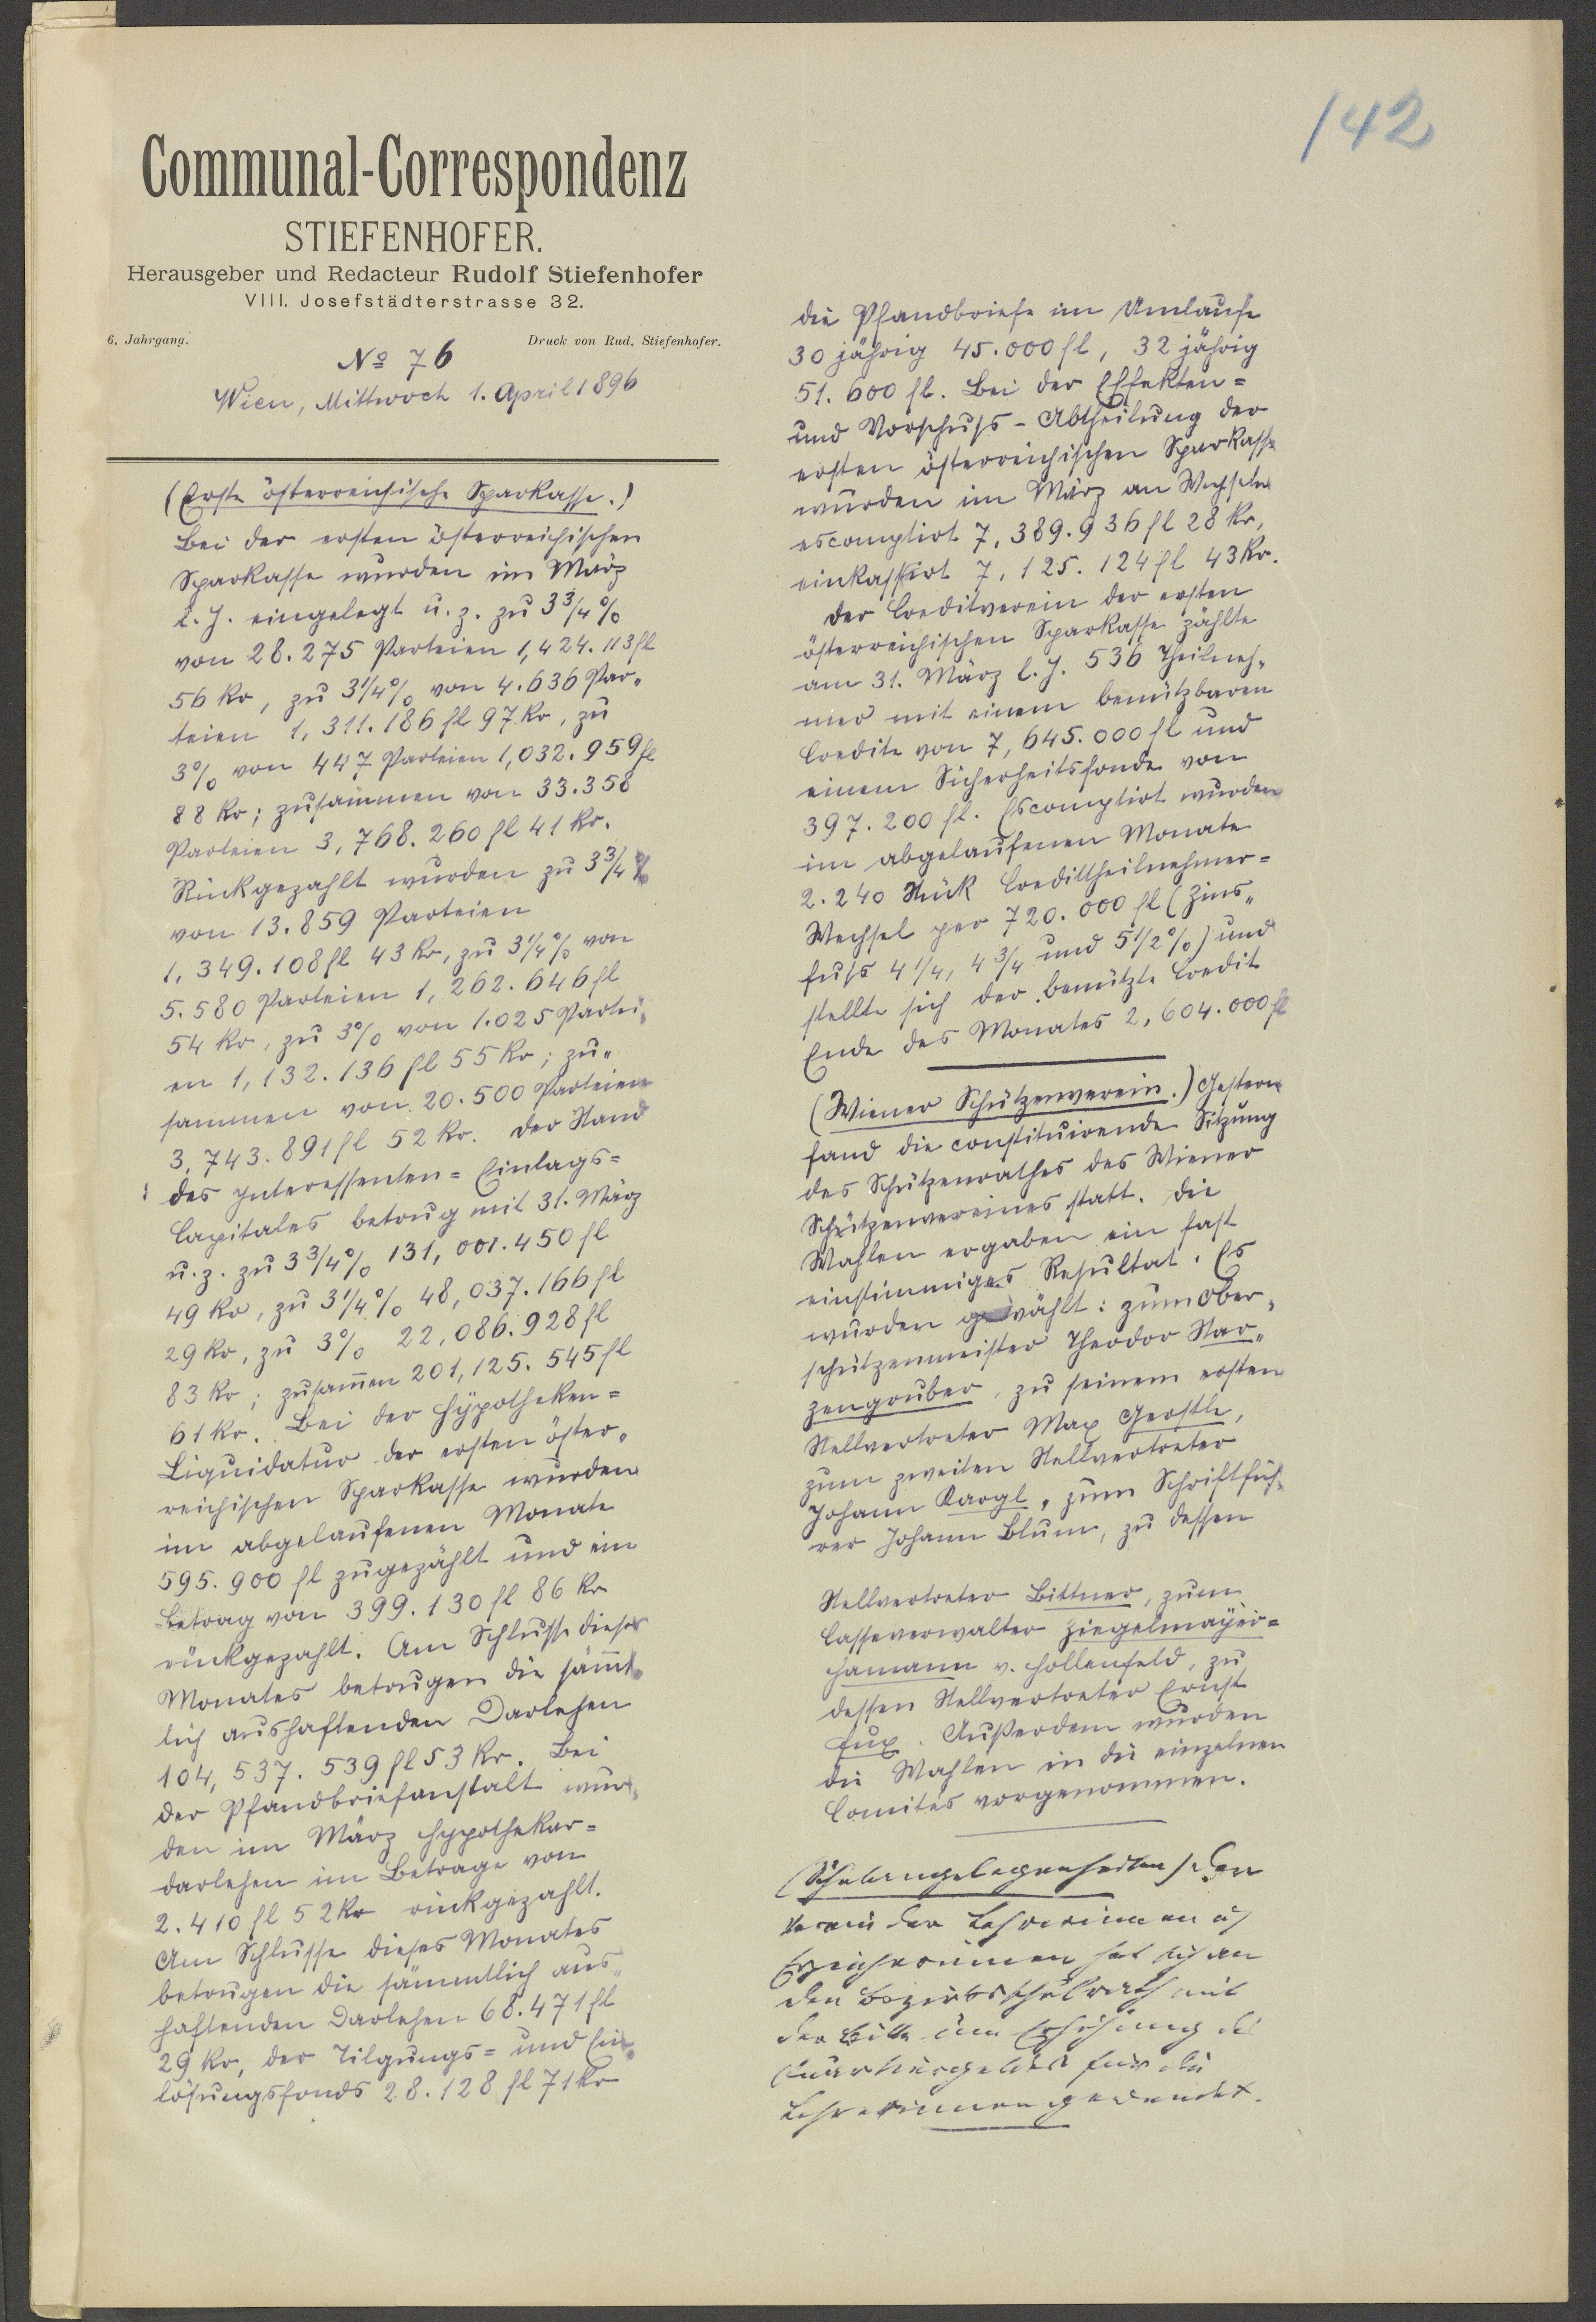 142
Communal-Correspondenz
STIEFENHOFER.
Herausgeber und Redacteur Rudolf Stiefenhofer
VIII. Josefstädterstrasse 32.
6. Jahrgang.
Druck von Rud. Stiefenhofer.
No 76
Wien, Mittwoch 1. April 1896
(Erste österreichische Sparkasse.)
Bei der ersten österreichischen
Sparkasse wurden im März
l. J. eingelegt u. z. zu 3 3/4 %
von 28.275 Parteien 1,424.113 fl
56 Kr, zu 3 1/4 % von 4.636 Par„
teien 1,311.186 fl 97 Kr, zu
3 % von 447 Parteien 1,032.959 fl
88 Kr; zusammen von 33.358
Parteien 3,768.260 fl 41 Kr.
Rückgezahlt wurden zu 3 3/4 %
von 13.859 Parteien
1,349.108 fl 43 Kr, zu 3 1/4 % von
5.580 Parteien 1,262.646 fl
54 Kr, zu 3 % von 1.025 Partei„
en 1,132.136 fl 55 Kr; zu„
sammen von 20.500 Parteien
3,743.891 fl 52 Kr. Der Stand
des Interessenten= Einlags=
Capitales betrug mit 31. März
u. z. zu 3 3/4 % 131,001.450 fl
49 Kr, zu 3 1/4 % 48,037.166 fl
29 Kr, zu 3 % 22,086.928 fl
83 Kr; zusam̄en 201,125.545 fl
61 Kr. Bei der Hypotheken=
Liquidatur der ersten öster„
reichischen Sparkasse wurden
im abgelaufenen Monate
595.900 fl zugezählt und ein
Betrag von 399.130 fl 86 Kr
rückgezahlt. Am Schlusse dieses
Monates betrugen die säm̄t„
lich aushaftenden Darlehen
104,537.539 fl 53 Kr. Bei
der Pfandbriefanstalt wur„
den im März Hypothekar=
darlehen im Betrage von
2.410 fl 52 Kr rückgezahlt.
Am Schlusse dieses Monates
betrugen die sämmtlich aus„
haftenden Darlehen 68.471 fl
29 Kr, der Tilgungs= und Ein„
lösungsfonds 28.128 fl 71 Kr
die Pfandbriefe im Umlaufe
30 jährig 45.000 fl, 32 jährig
51.600 fl. Bei der Effekten=
und Vorschuss-Abtheilung der
ersten österreichischen Sparkasse
wurden im März an Wechseln
escomptirt 7,389.936 fl 28 Kr,
einkassirt 7,125.124 fl 43 Kr.
Der Creditverein der ersten
österreichischen Sparkasse zählte
am 31. März l. J. 536 Theilneh„
mer mit einem benützbaren
Credite von 7,645.000 fl und
einem Sicherheitsfonde von
397.200 fl. Escomptirt wurden
im abgelaufenen Monate
2.240 Stück Credittheilnehmer=
Wechsel per 720.000 fl (Zins„
fuss 4 1/4, 4 3/4 und 5 1/2 %) und
stellte sich der benützte Credit
Ende des Monates 2,604.000 fl
(Wiener Schützenverein.) Gestern
fand die constituirende Sitzung
des Schützenrathes des Wiener
Schützenvereines statt. Die
Wahlen ergaben ein fast
einstimmiges Resultat. Es
wurden gewählt: zum Ober„
schützenmeister Theodor Star„
zengruber, zu seinem ersten
Stellvertreter Max Gerstle,
zum zweiten Stellvertreter
Johann Kargl, zum Schriftfüh„
rer Johann Blum, zu dessen
Stellvertreter Bittner, zum
Casseverwalter Ziegelmayer=
Hamann v. Hollenfeld, zu
dessen Stellvertreter Ernst
Fux. Außerdem wurden
die Wahlen in die einzelnen
Comités vorgenommen.
(Schulangelegenheiten) Der
Verein der Lehrerinnen u
Erzieherinnen hat sich an
den Bezirksschulrath mit
der Bitte um Erhöhung des
Quartiergeldes für die
Lehrerinnen gewendet.